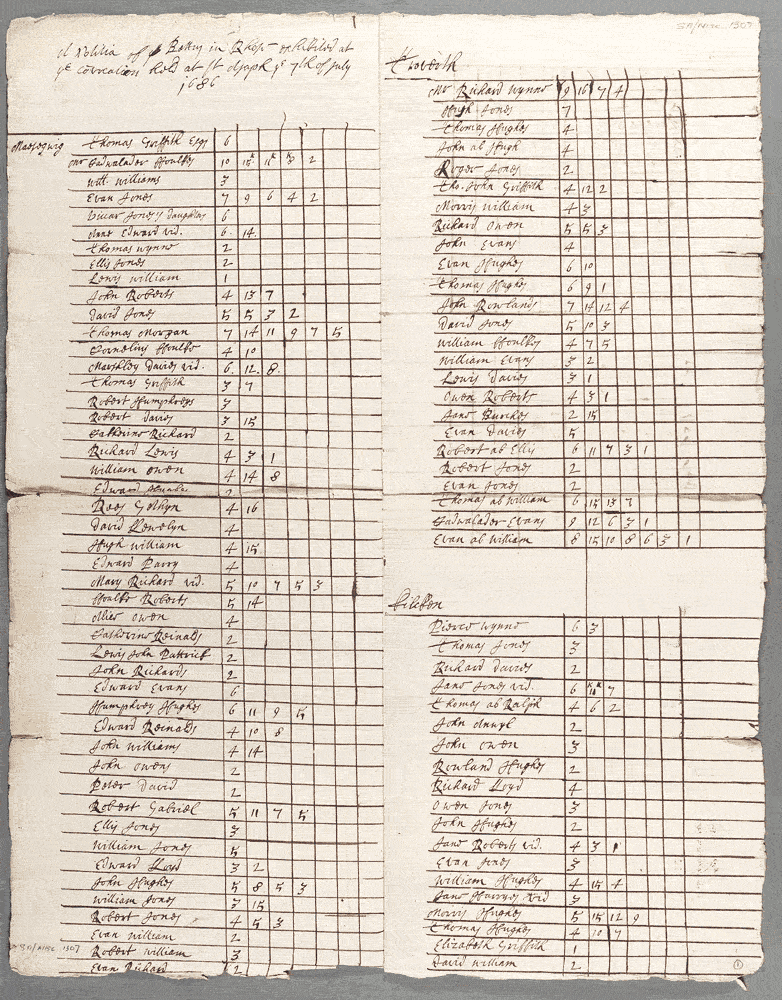 A Notitia of ye Poore in Rhes- exhibited at
ye Correction held at St Asaph ye 7th of July
1686
SA/Misc. 1307
Maesegwig
Thomas Griffith Esqr 6
Mr Cadwalader Ffoulkes 10 15 11 3 2
Will. Williams 3
Evan Jones 7 9 6 4 2
Vicar Jones's daughters 6
Jane Edward vid. 6 14
Thomas Wynne 2
Ellis Jones 2
Lewis William 1
John Roberts 4 13 7
David Jones 5 5 3 2
Thomas Morgan 7 14 11 9 7 5
Cornelius Ffoulke 4 10
Davies vid. 6 12 8
Thomas Griffith 3 7
Robert Humphreys 3
Robert Davies 3 15
Catherine Richard 2
Richard Lewis 4 3 1
William Owen 4 14 8
Edward 2
Rees Gethyn 4 16
David Llewelyn 4
Hugh William 4 15
Edward Parry 4
Mary Richard vid. 5 10 7 5 3
Ffoulke Roberts 5 14
Owen 4
Catherine Reinalds 2
Lewis John Pattrick 2
John Richards 2
Edward Evans 6
Humphrey Hughes 6 11 9 5
Edward Reinalds 4 10 8
John Williams 4 14
John Owens 2
Peter David 2
Robert Gabriel 5 11 7 5
Ellis Jones 3
William Jones 5
Edward Lloyd 3 2
John Hughes 5 8 5 3
William Jones 3 15
Robert Jones 4 5 3
Evan William 2
Robert William 3
Evan Richard 2
SA/Misc 1307
Trovarth
Mr Richard Wynne 9 16 7 4
Hugh Jones 7
Thomas Hughes 4
John ab Hugh 4
Roger Jones 2
Tho. John Griffith 4 12 2
Morris William 4 3
Richard Owen 5 5 3
John Evans 4
Evan Hughes 6 10
Thomas Hughes 6 9 1
John Rowlands 7 14 12 4
David Jones 5 10 3
William Ffoulkes 4 7 5
William Evans 3 2
Lewis Davies 3 1
Owen Roberts 4 3 1
Jane Burches 2 15
Evan Davies 5
Robert ab Ellis 6 11 7 3 1
Robert Jones 2
Evan Jones 2
Thomas ab William 6 15 13 7
Cadwalader Evans 9 12 6 3 1
Evan ab William 8 15 10 8 6 3 1
Cilcen
Pierce Wynne 6 3
Thomas Jones 3
Richard Davies 2
Jane Jones vid. 6 11 7
Thomas ab Ralph 4 6 2
John Anwyl 2
John Owen 3
Rowland Hughes 2
Richard Lloyd 4
Owen Jones 3
John Hughes 2
Jane Roberts vid. 4 3 1
Evan Jones 3
William Hughes 4 15 4
Jane Harryes vid 3
Morris Hughes 5 15 12 9
Thomas Hughes 4 10 7
Elizabeth Griffith 1
David William 2
1